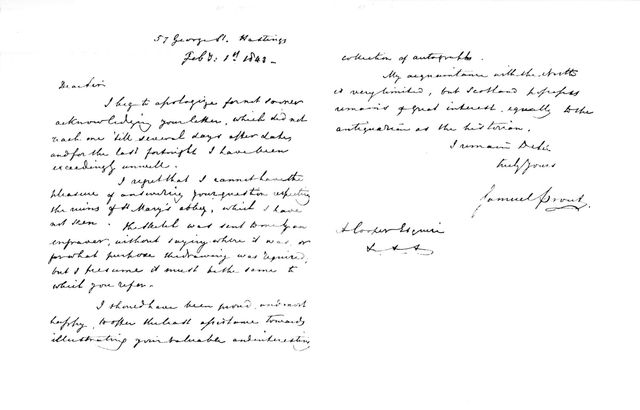 57 George St. Hastings
Feby. 1st 1843 -
Dear Sir
I beg to apologize for not sooner
acknowledging your letter, which did not
reach me till several days after date,
and for the last fortnight I have been
exceedingly unwell.
I regret that I cannot have the
pleasure of answering your question respecting
the ruins of St Mary's abbey, which I have
not seen. The sketch was sent to me by an
engraver, without saying where it was, or
for what purpose the drawing was required,
but I presume it must be the same to
which you refer.
I should have been proud, and most
happy, to offer the least assistance towards
illustrating your valuable and interesting
collection of autographs.
My acquaintance with the North
is very limited, but Scotland possesses
remains of great interest, equally to the
antiquarian as the historian.
I remain D Sir
truly yours
Samuel Prout.
Cooper Esquire